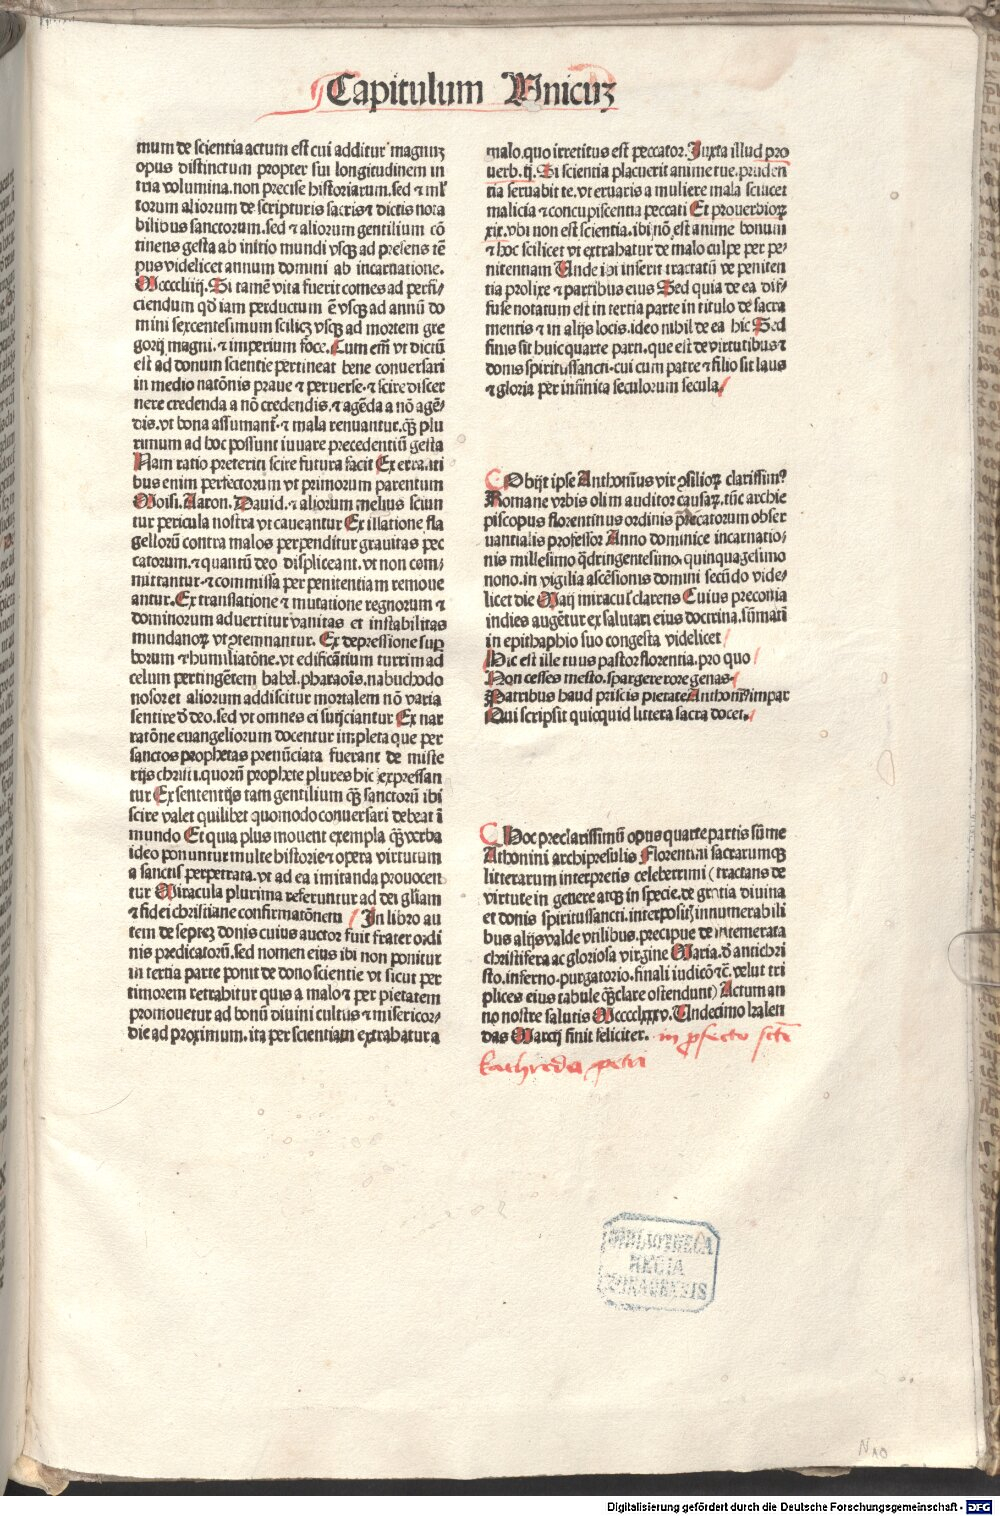 Capitulum Vnicuʒ
mum de scientia actum est cui additur magnuʒ
opus distinctum propter sui longitudinem in
tria volumina. non precise historiarum. sed ⁊ ml̓
torum aliorum de scripturis sacris ⁊ dictis nota
bilibus sanctorum. sed ⁊ aliorum gentilium cō
tinens gesta ab initio mundi vsqꝫ ad presens tē
pus videlicet annum domini ab incarnatione.
Mccccliiij. Si tamē vita fuerit comes ad perfi⸗
ciendum qd̓ iam perductum ē vsqꝫ ad annū do
mini sexcentesimum scilicꝫ vsqꝫ ad mortem gre
gorij magni. ⁊ imperium foce. Cum em̄ vt dictū
est ad donum scientie pertineat bene conuersari
in medio natōnis praue ⁊ peruerse. ⁊ scire discer
nere credenda a nō credendis. ⁊ agēda a nō agē⸗
dis. vt bona assumant̄. ⁊ mala renuantur. qꝫ plu
rimum ad hoc possunt iuuare precedentiū gesta
Nam ratio preteriti scire futura facit Ex erranti
bus enim perfectorum vt primorum parentum
Moisi. Aaron. Dauid. ⁊ aliorum melius sciun
tur pericula nostra vt caueantur Ex illatione fla
gellorū contra malos perpenditur grauitas pec
catorum. ⁊ quantū deo displiceant. vt non com⸗
mittantur. ⁊ commissa per penitentiam remoue
antur. Ex translatione ⁊ mutatione regnorum ⁊
dominorum aduertitur vanitas et instabilitas
mundanoꝝ vt ↄtemnantur. Ex depressione suꝑ
borum ⁊ humiliatōne. vt edificātium turrim ad
celum pertingētem babel. pharaois. nabuchodo
nosor et aliorum addiscitur mortalem nō varia
sentire d̓ deo. sed vt omnes ei subijciantur Ex nar
ratōne euangeliorum docentur impleta que per
sanctos prophetas prenūciata fuerant de miste
rijs christi. quorū prophete plures hic expressan
tur Ex sententijs tam gentilium qꝫ sanctorū ibi
scire valet quilibet quomodo conuersari debeat ī
mundo Et quia plus mouent exempla qꝫ verba
ideo ponuntur multe historie ⁊ opera virtutum
a sanctis perpetrata. vt ad ea imitanda prouocen
tur Miracula plurima referuntur ad dei gl̄iam
⁊ fidei christiane confirmatōnem In libro au
tem de septeꝫ donis cuius auctor fuit frater ordi
nis predicatorū. sed nomen eius ibi non ponitur
in tertia parte ponit de dono scientie vt sicut per
timorem retrahitur quis a malo ⁊ per pietatem
promouetur ad bonū diuini cultus ⁊ misericor⸗
die ad proximum. ita per scientiam extrahatur a
malo. quo irretitus est peccator. Iuxta illud pro
uerb. ij. Si scientia placuerit anime tue. pruden
tia seruabit te. vt eruaris a muliere mala scilicet
malicia ⁊ concupiscentia peccati Et prouerbioꝝ
xix. vbi non est scientia. ibi nō est anime bonum
⁊ hoc scilicet vt extrahatur de malo culpe per pe⸗
nitentiam Unde ibi inserit tractatū de peniten
tia prolixe ⁊ partibus eius Sed quia de ea dif⸗
fuse notatum est in tertia parte in titulo de sacra
mentis ⁊ in alijs locis. ideo nihil de ea hic Sed
finis sit huic quarte parti. que est de virtutibus ⁊
donis spiritussancti. cui cum patre ⁊ filio sit laus
⁊ gloria per infinita seculorum secula.
Obijt ipse Anthonius vir ↄsilioꝝ clarissim⁹
Romane vrbis olim auditor causaꝝ. tūc archie
piscopus florentinus ordinis predicatorum obser
uantialis professor Anno dominice incarnatio⸗
nis millesimo q̄dringentesimo. quinquagesimo
nono. in vigilia ascēsionis domini secūdo vide⸗
licet die Maij miracul̓ clarens Cuius preconia
indies augētur ex salutari eius doctrina. sūmati
in epithaphio suo congesta videlicet
Hic est ille tuus pastor florentia. pro quo
Non cesses mesto. spargere rore genas.
Patribus haud priscis pietate Anthoni⁹ impar
Qui scripsit quicquid littera sacra docet.
Hoc preclarissimū opus quarte partis sūme
Athonini archipresulis Florentini sacrarumqꝫ
litterarum interpretis celeberrimi (tractans de
virtute in genere atqꝫ in specie. de gratia diuina
et donis spiritussancti. interpositꝫ innumerabili
bus alijs valde vtilibus. precipue de intemerata
christifera ac gloriosa virgine Maria. d̓ antichri
sto. inferno. purgatorio. finali iudicō ⁊c̄. velut tri
plices eius tabule qꝫ clare ostendunt) Actum an
no nostre salutis Mcccclxxxv. Undecimo kalen
das Marcij finit feliciter. in ꝓfecto scti
kathreda petri
BIBLIOTHECA
REGIA
MONACENSIS
Digitalisierung gefördert durch die Deutsche Forschungsgemeinschaft - DFG